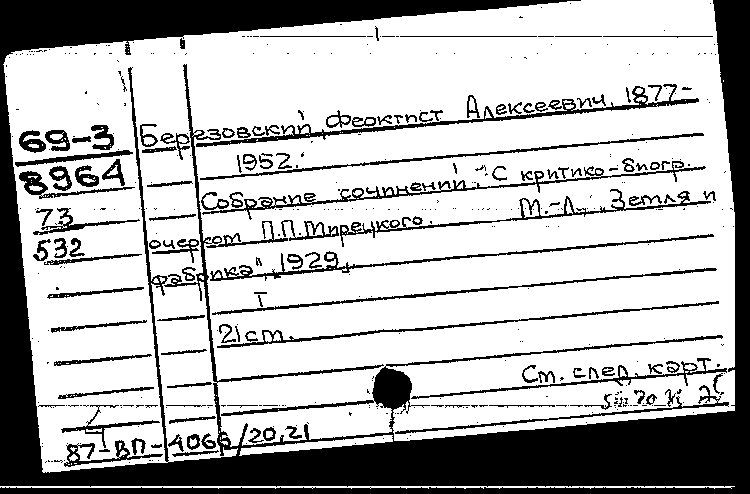 69-3
8964
73
532
Березовский, Феоктист Алексеевич, 1877-
1952.
Собрание сочинений. С критико-биогр.
очерком П.П.Мирецкого. М.-Л., "Земля и
фабрика", 1929,
т
21 ст.
См. след. карт.
87-ВП-4066/20,21